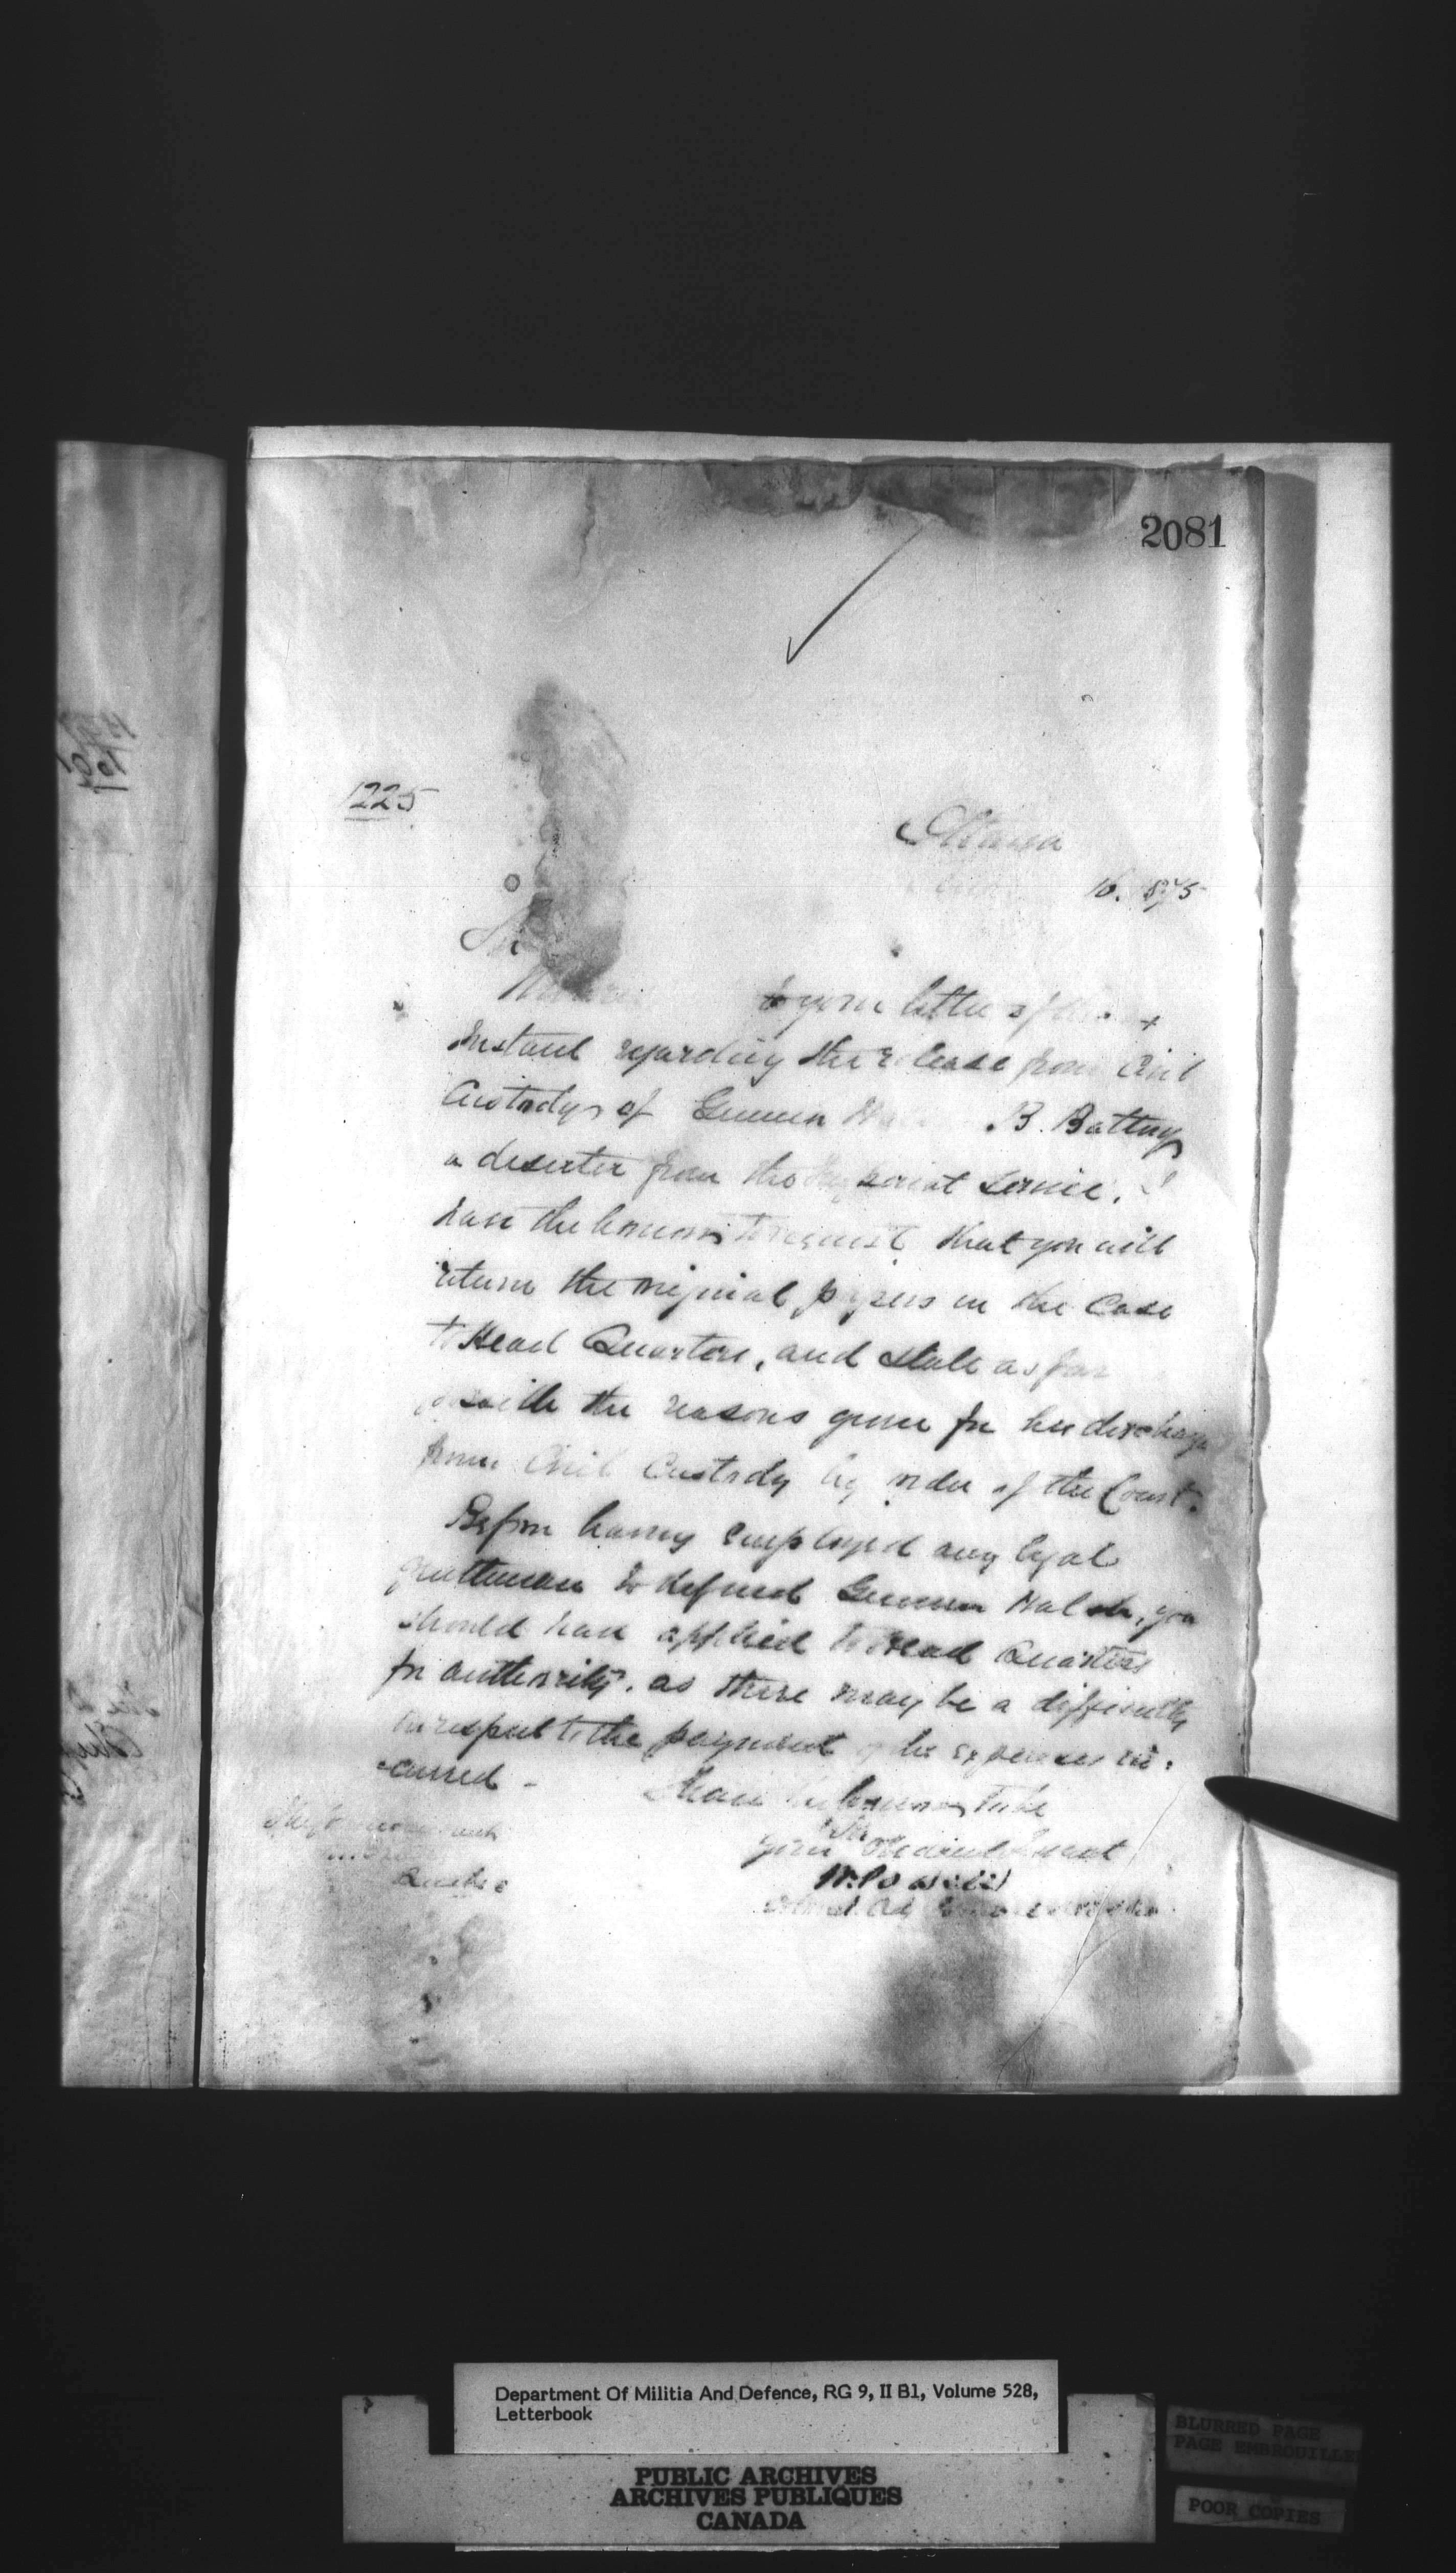 2081
1225
Ottawa
16. 1875
Sir
to your letter of
Instant regarding the release from Civil
Custody of Gunner B. Battery
a deserter from the Imperial Service. I
have the honor to request that you will
return the original papers in the Case
to Head Quarters, and state as far
possible the reasons given for his discharge
from Civil Custody by order of the Court.
Before having employed any legal
gentleman to defend Gunner Walsh, you
should have applied to Head Quarters
for authority, as there may be a difficulty
in respect to the payment of the expenses in-
-curred -
I have the honor to be
Sir
Your Obedient Servant
W. Powell
Quebec
Department Of Militia And Defence, RG 9, II B1, Volume 528,
Letterbook
PUBLIC ARCHIVES
ARCHIVES PUBLIQUES
CANADA
BLURRED PAGE
PAGE EMBROUILLE
POOR COPIES